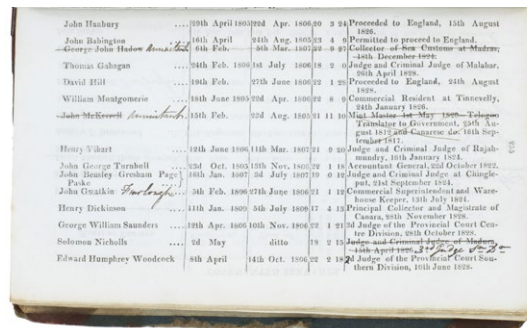 John Hanbury .... 29th April 1805 22d Apr. 1806 20 3 24 Proceeded to England, 15th August
1826.
John Babington .... 16th April 24th Aug. 1805 23 4 9 Permitted to proceed to England.
George John Hadow Annuitant 6th Feb. 5th Mar. 1807 22 9 27 Collector of Sea Customs at Madras,
18th December 1824.
Thomas Gahagan .... 24th Feb. 1806 1st July 1806 18 2 0 Judge and Criminal Judge of Malabar,
26th April 1828.
David Hill .... 19th Feb. 27th June 1806 22 1 28 Proceeded to England, 24th August
1828.
William Montgomerie .... 18th June 1805 22d Apr. 1806 22 8 9 Commercial Resident at Tinnevelly,
24th January 1826.
John McKerrell Annuitant 15th Feb. 22d Aug. 1805 21 11 10 Mint Master 1st May 1820 Teloogoo
Translator to Government, 25th Au-
gust 1812 and Canarese do: 16th Sep-
tember 1817.
Henry Vibart .... 12th June 1806 11th Mar. 1807 21 9 20 Judge and Criminal Judge of Rajah-
mundry, 16th January 1824.
John George Turnbull .... 23d Oct. 1805 13th Nov. 1806 22 1 18 Accountant General, 22d October 1822.
John Bensley Gresham Page 16th Jan. 1807 3d July 1807 19 0 12 Judge and Criminal Judge at Chingle-
Paske put, 21st September 1824.
John Gwatkin Furlough 5th Feb. 1806 27th June 1806 21 1 12 Commercial Superintendent and Ware-
house Keeper, 13th July 1824.
Henry Dickinson .... 11th Jan. 1809 5th July 1809 17 4 13 Principal Collector and Magistrate of
Canara, 28th November 1828.
George William Saunders .... 12th Apr. 1806 10th Nov. 1806 22 1 21 3d Judge of the Provincial Court Cen-
tre Division, 28th October 1828.
Solomon Nicholls .... 2d May ditto 19 2 15 Judge and Criminal Judge of Madura,
15th April 1826. 3d Judge
Edward Humphrey Woodcock 8th April 14th Oct. 1806 22 2 18 2d Judge of the Provincial Court Sou-
thern Division, 10th June 1828.